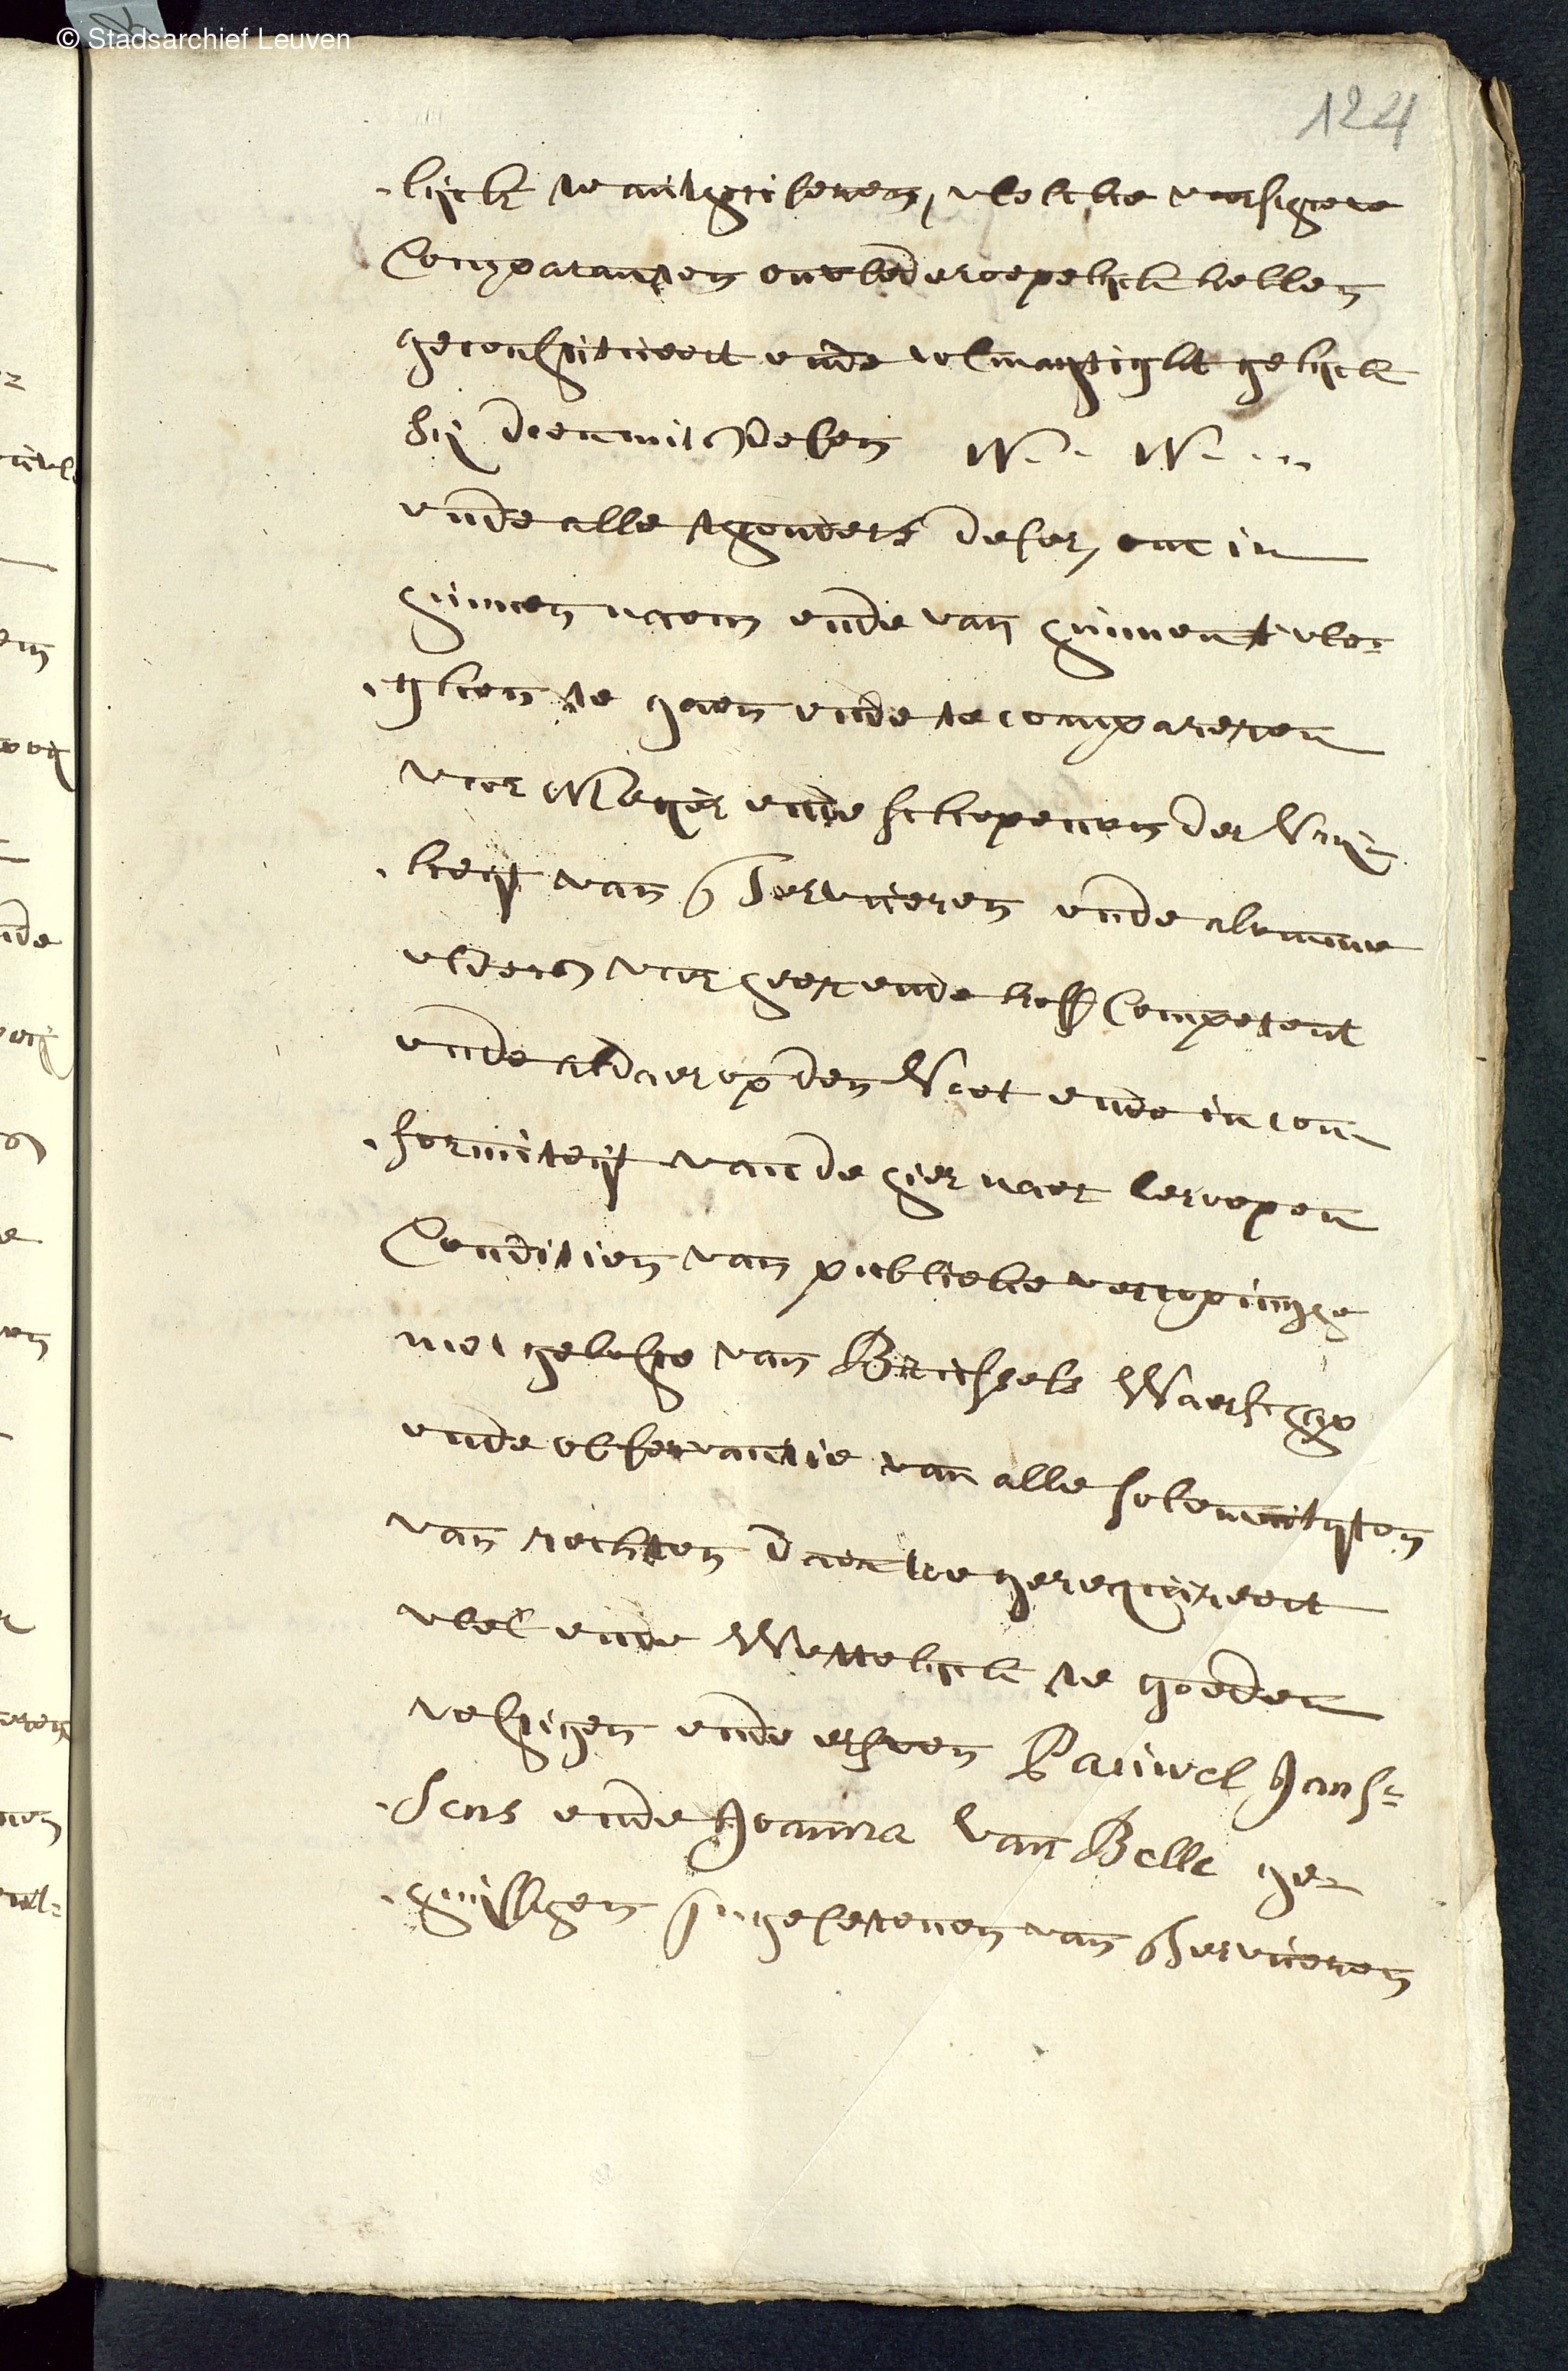 © Stadsarchief Leuven
124
lijck te autgriseren, welcke voorschreve
Comparanten onwederroepelijck hebben
geconstitueert ende volmachtight gelijck
sij doen mits desen N... N...
ende alle thonders deser, om in
hunnen naem ende van hunnent we-
ghen te gaen ende te compareren
voor Meijer ende schepenen der Vrij-
heijt van Tervueren ende alomme
elders voor heer ende hoff Competent
ende aldaer op den Voet ende in con-
formiteijt vande hier naer beroepen
Conditien van publieke vercopinge
met gelofte van Brussels Waerschap
ende observantie van alle solemniteijten
van rechten daer toe gerequireert
wel ende Wettelijck te goeden
vestigen ende erfven Pauwel Jans-
sens ende Joanna Van Belle ge-
huijsschen ingesetenen van Tervueren